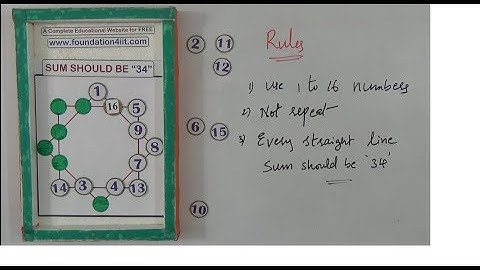 A Complete Educational Website for FREE
www.foundation4iit.com
SUM SHOULD BE "34"
1
16
5
9
8
7
14
3
4
13
2
11
12
6
15
10
Rules
1) use 1 to 16 numbers
2) Not repeat
3) Every straight line
Sum should be '34'